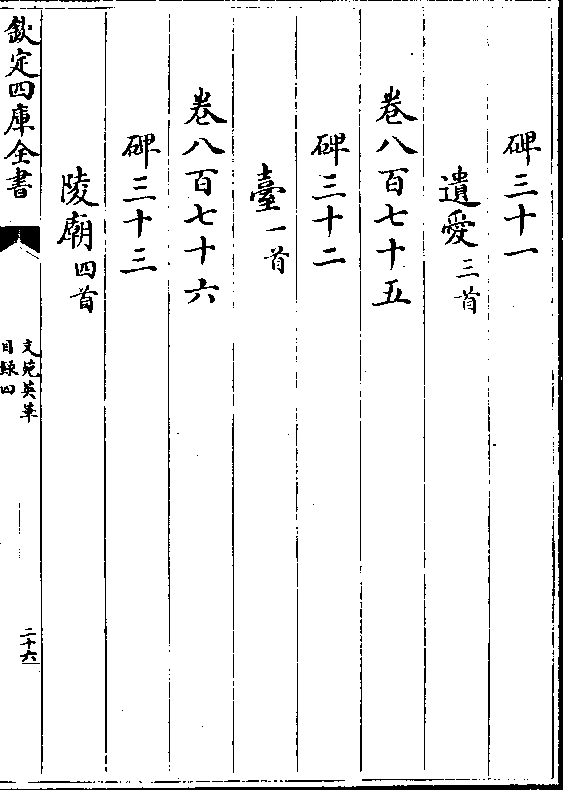 碑三十一
遺愛三首
卷八百七十五
碑三十二
臺一首
卷八百七十六
碑三十三
陵廟四首
欽定四庫全書
文苑英華
目録四
二十六